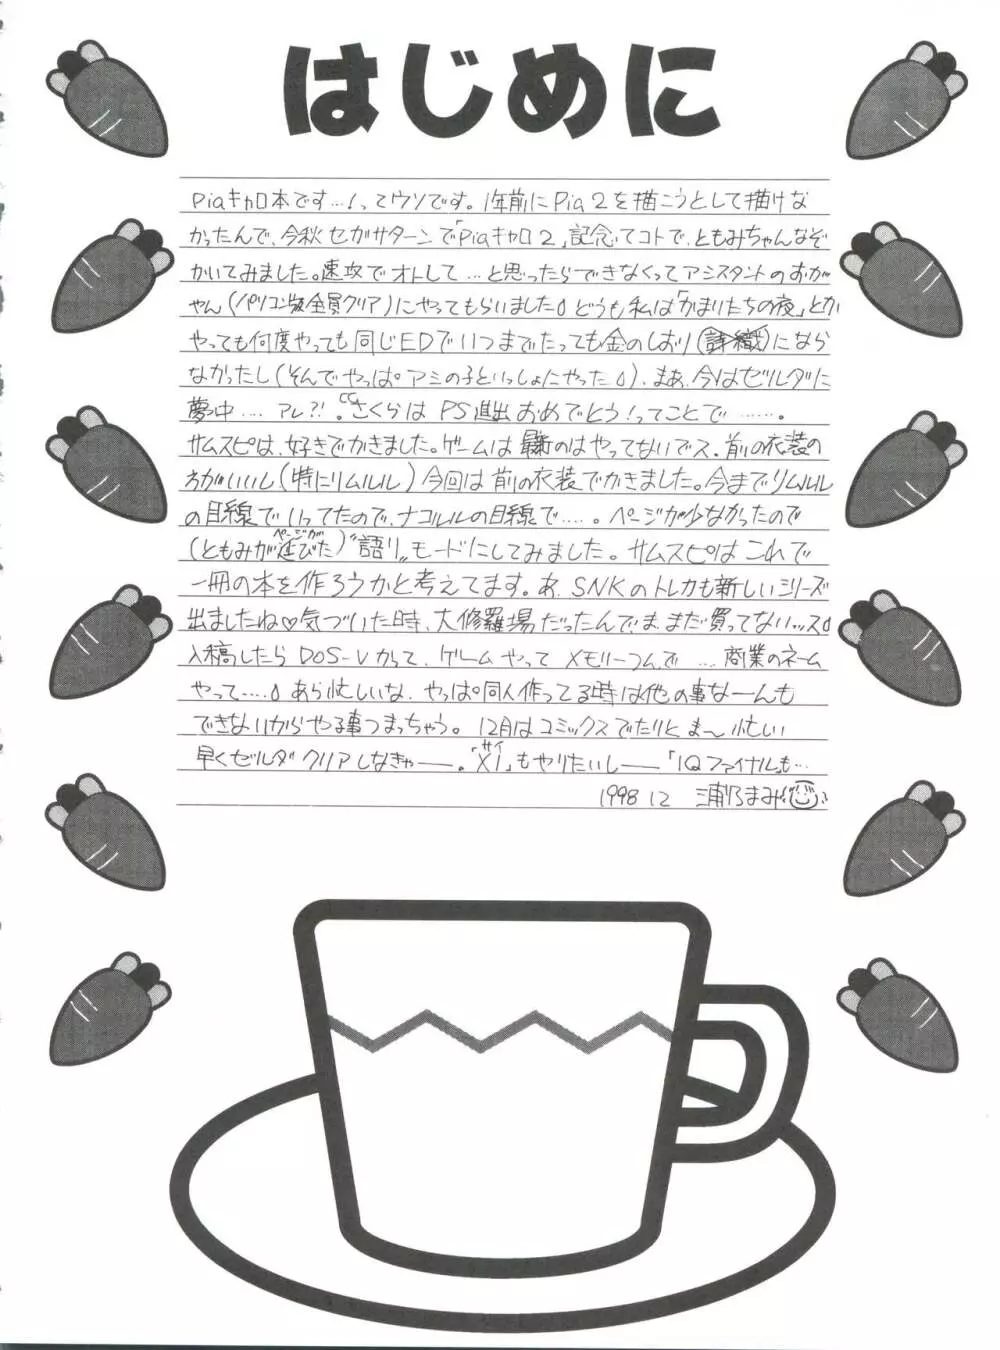 はじめに
Piaキャロ本です…!ってウソです。1年前にPia2を描こうとして描けな
かったんで、今秋セガサターンで「Piaキャロ2」記念てコトで、ともみちゃんなぞ
かいてみました。速攻でオトして…と思ったらできなくってアシスタントのおが
やん(パソコン版全員クリア)にやってもらいました どうも私は「かまいたちの夜」とか
やっても何度やっても同じEDでいつまでたっても金のしおり(詩織)になら
なかったし(そんでやっぱアミの子といっしょにやった)、まあ、今はゼルダに
夢中…. アレ?!。“CCさくらは PS進出おめでとう!ってことで…….
サムスピは、好きでかきました。ゲームは最新のはやってないでス.前の衣装の
方がいいし(特にリムルル)今回は前の衣装でかきました。今までリムルル
の目線でいってたので、ナコルルの目線で…..。ページが少なかったので
(ともみがページが延びた)“語り„モードにしてみました。サムスピはこれで
一冊の本を作ろうかと考えてます。あ、SNKのトレカも新しいシリーズ
出ましたね♡気づいた時、大修羅場だったんでま、まだ買ってないッス
入稿したらDOS-Vかって、ゲームやってメモリーつんで….商業のネーム
やって….あら忙しいな、やっぱ同人作ってる時は他の事なーんも
できないからやる事つまっちゃう。12月はコミックスでたりと ま〜忙しい
早くゼルダクリアしなきゃー。「XIサイ」もやりたいしー「IQファイナル」も…
1998 12 浦乃まみ